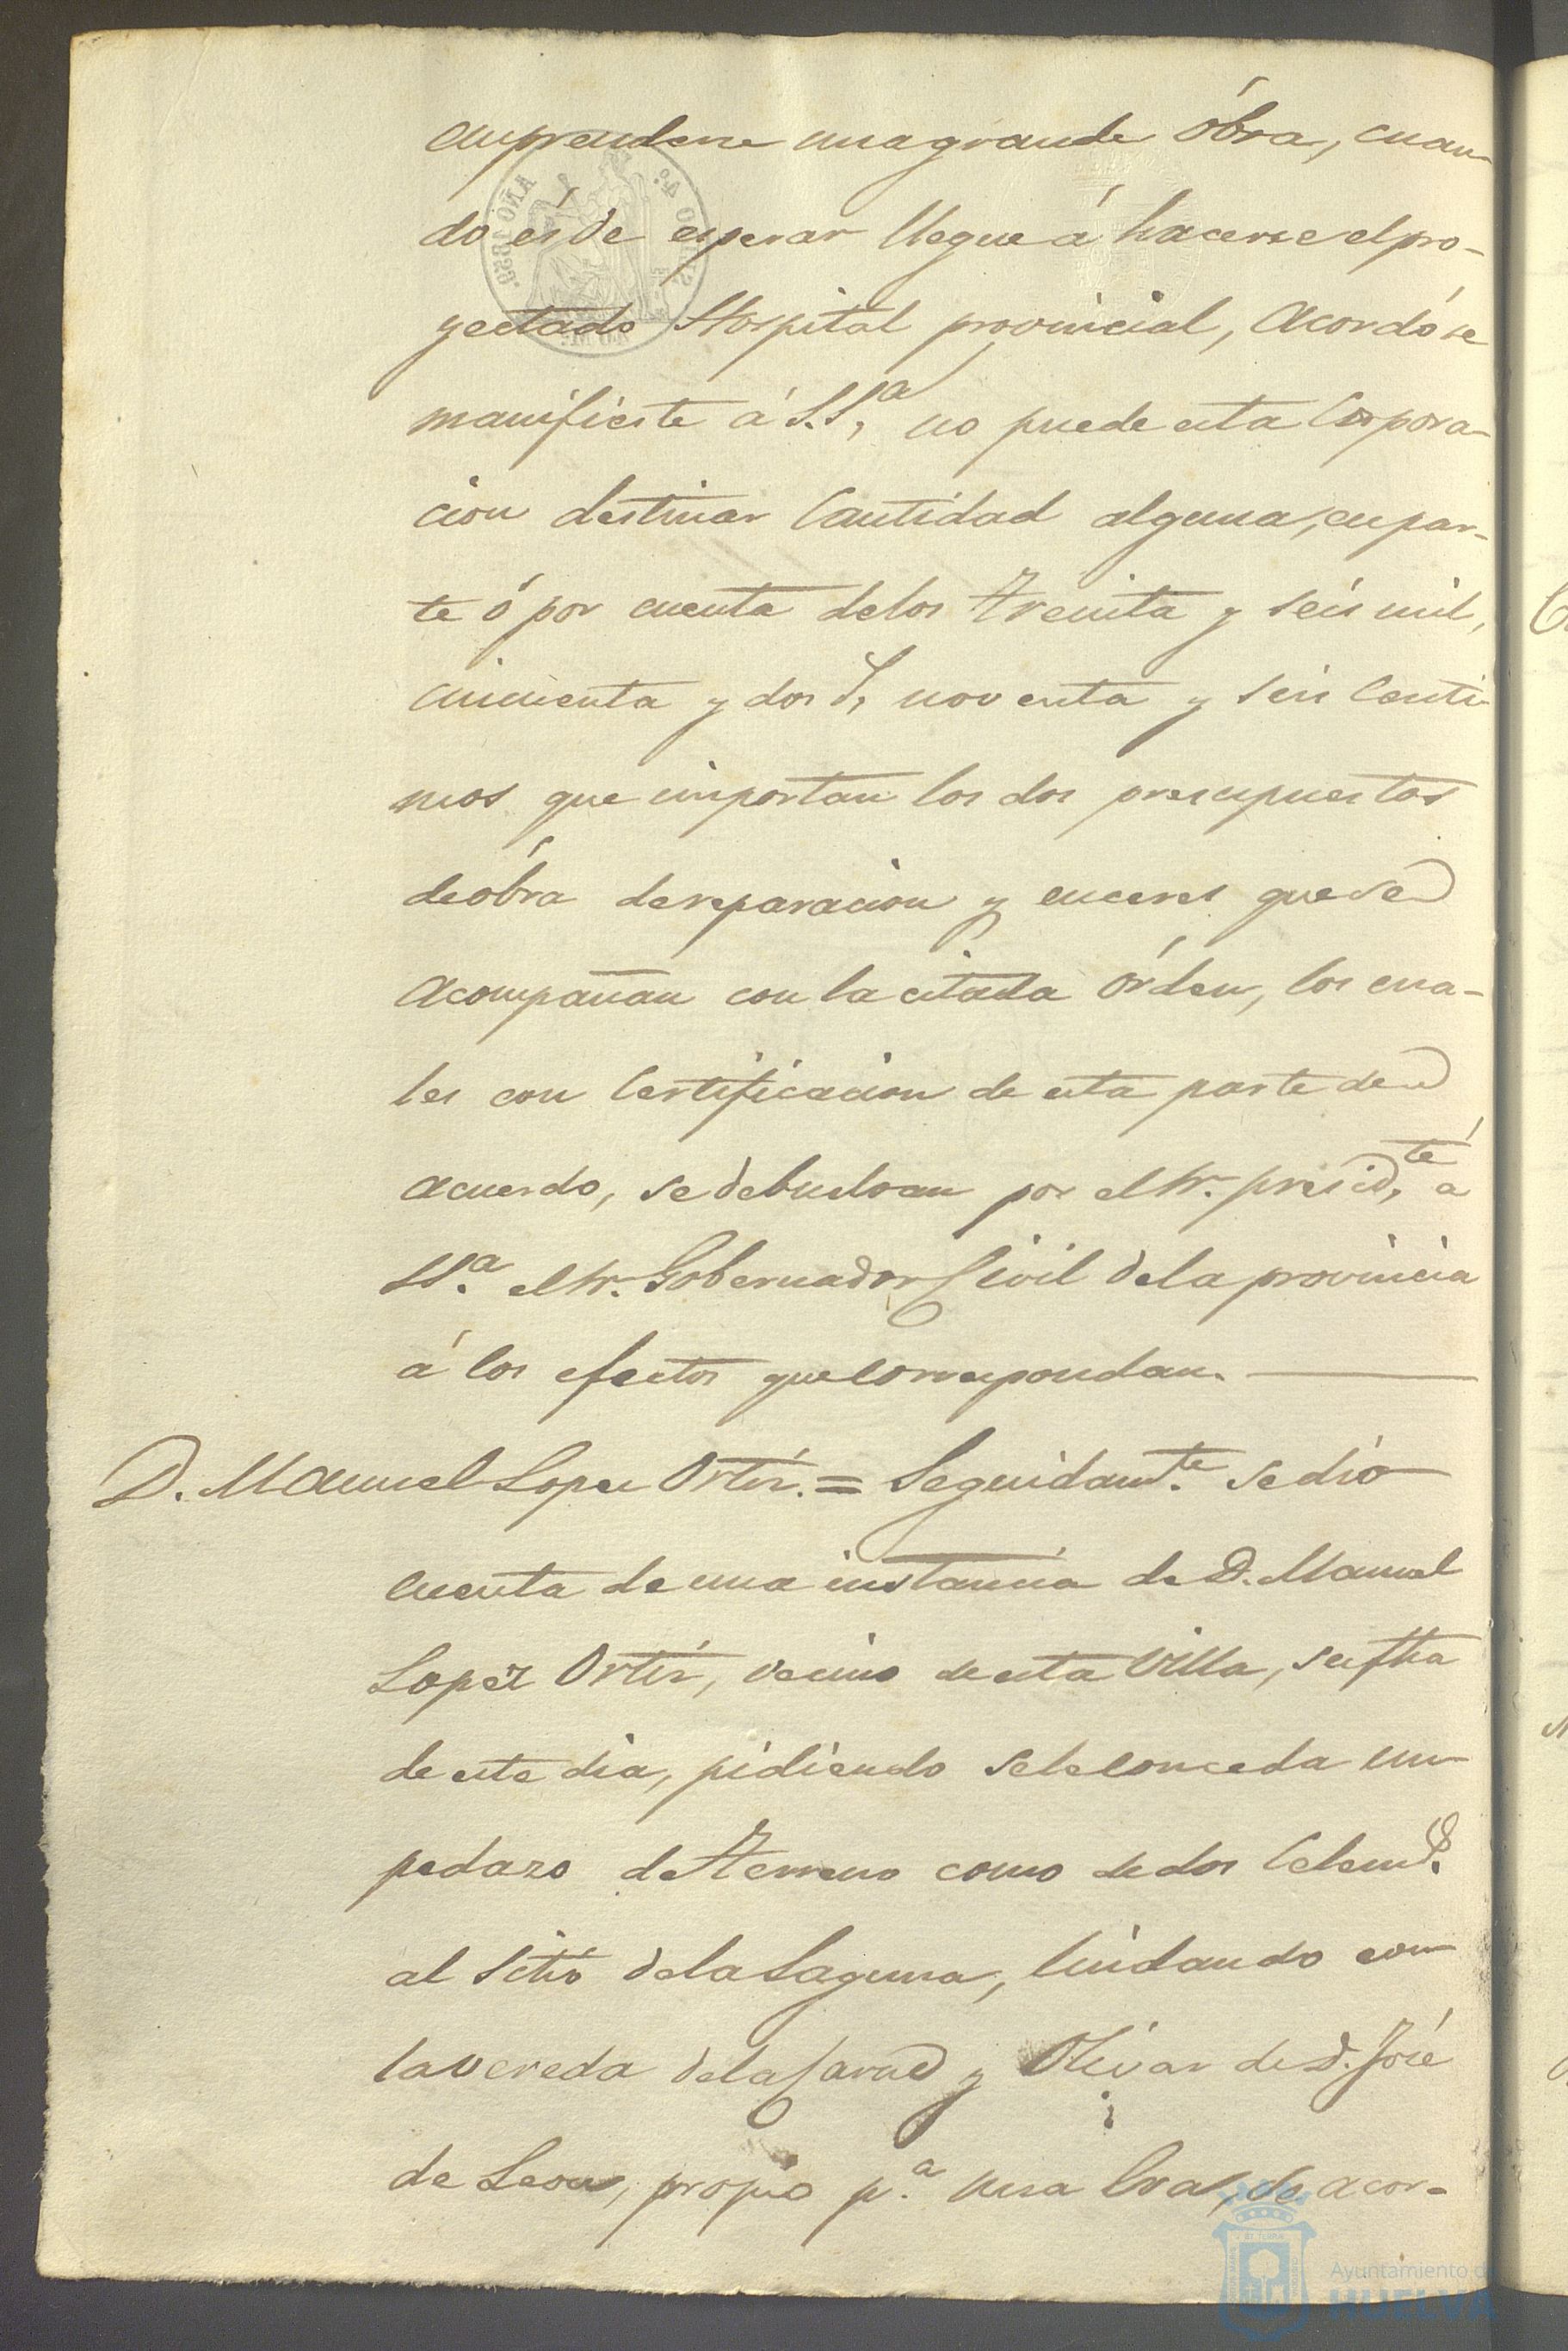 emprenderse una grande óbra, cuan-
do es de esperar llegue á hacerse el pro-
yectado Hospital provincial, acordó se
manifieste á S.Sª, no puede esta Corpora-
cion destinar Cantidad alguna, en par-
te ó por cuenta de los treinta y seis mil,
cincuenta y dos r, noventa y seis Centi-
mos que importan los dos presupuestos
de óbra de reparacion y enceres que se
acompañan con la citada órden, los cua-
les con Certificacion de esta parte de
acuerdo, se debuelvan por el Sr. presidte á
SSª. el Sr. Gobernador Civil de la provincia
á los efectos que correspondan.
D. Manuel Lopez Ortiz. = Seguidamte. se dió
cuenta de una instancia de D. Manuel
Lopez Ortiz, vecino de esta Villa, su fha
de este dia, pidiendo se le conceda un
pedazo de terreno como de dos Celems.
al sitio de la Laguna, lindando con
la vereda de la y Olivar de D. José
de Leon, propio p.ª una Era, se acor-
AÑO 1858.
SELLO 4º.
Ayuntamiento de
HUELVA